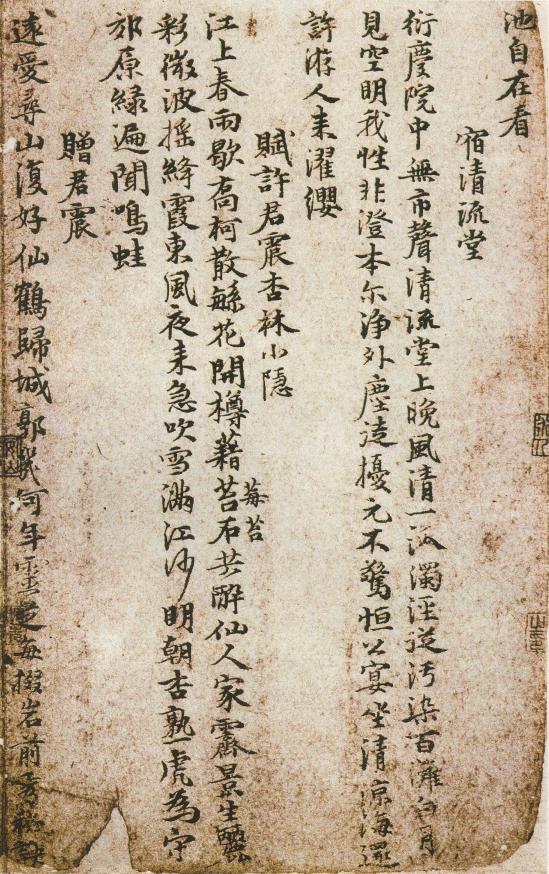 池自在看
宿清流堂
衍慶院中無市聲清流堂上晚風清一泓濁涇從汚染百灘白月
見空明我性非澄本尔净外塵遠擾元不驚恒公宴坐清涼海還
許游人来濯纓
賦許君震杏林小隱
江上春雨歇高柯散繇花開樽藉苔石共酔仙人家霽景生麗
莓苔
彩微波揺絳霞東風夜来急吹雪滿江沙明朝杏熟一虎為守
郊原緑遍聞鳴蛙
贈君震
遠愛尋山復好仙鶴歸城郭幾何年靈芝每掇岩前秀